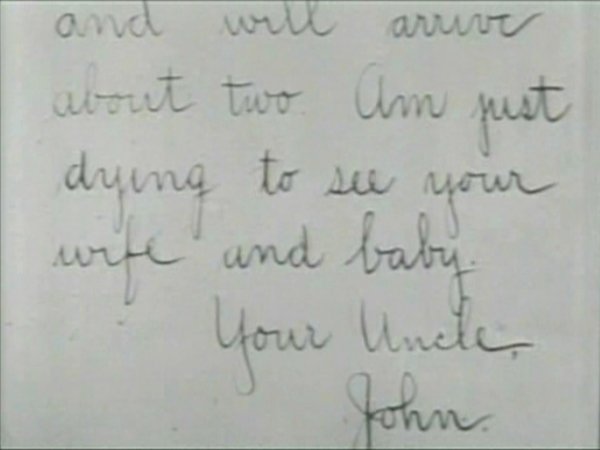 and will arrive
about two. Am just
dying to see your
wife and baby.
Your Uncle,
John.